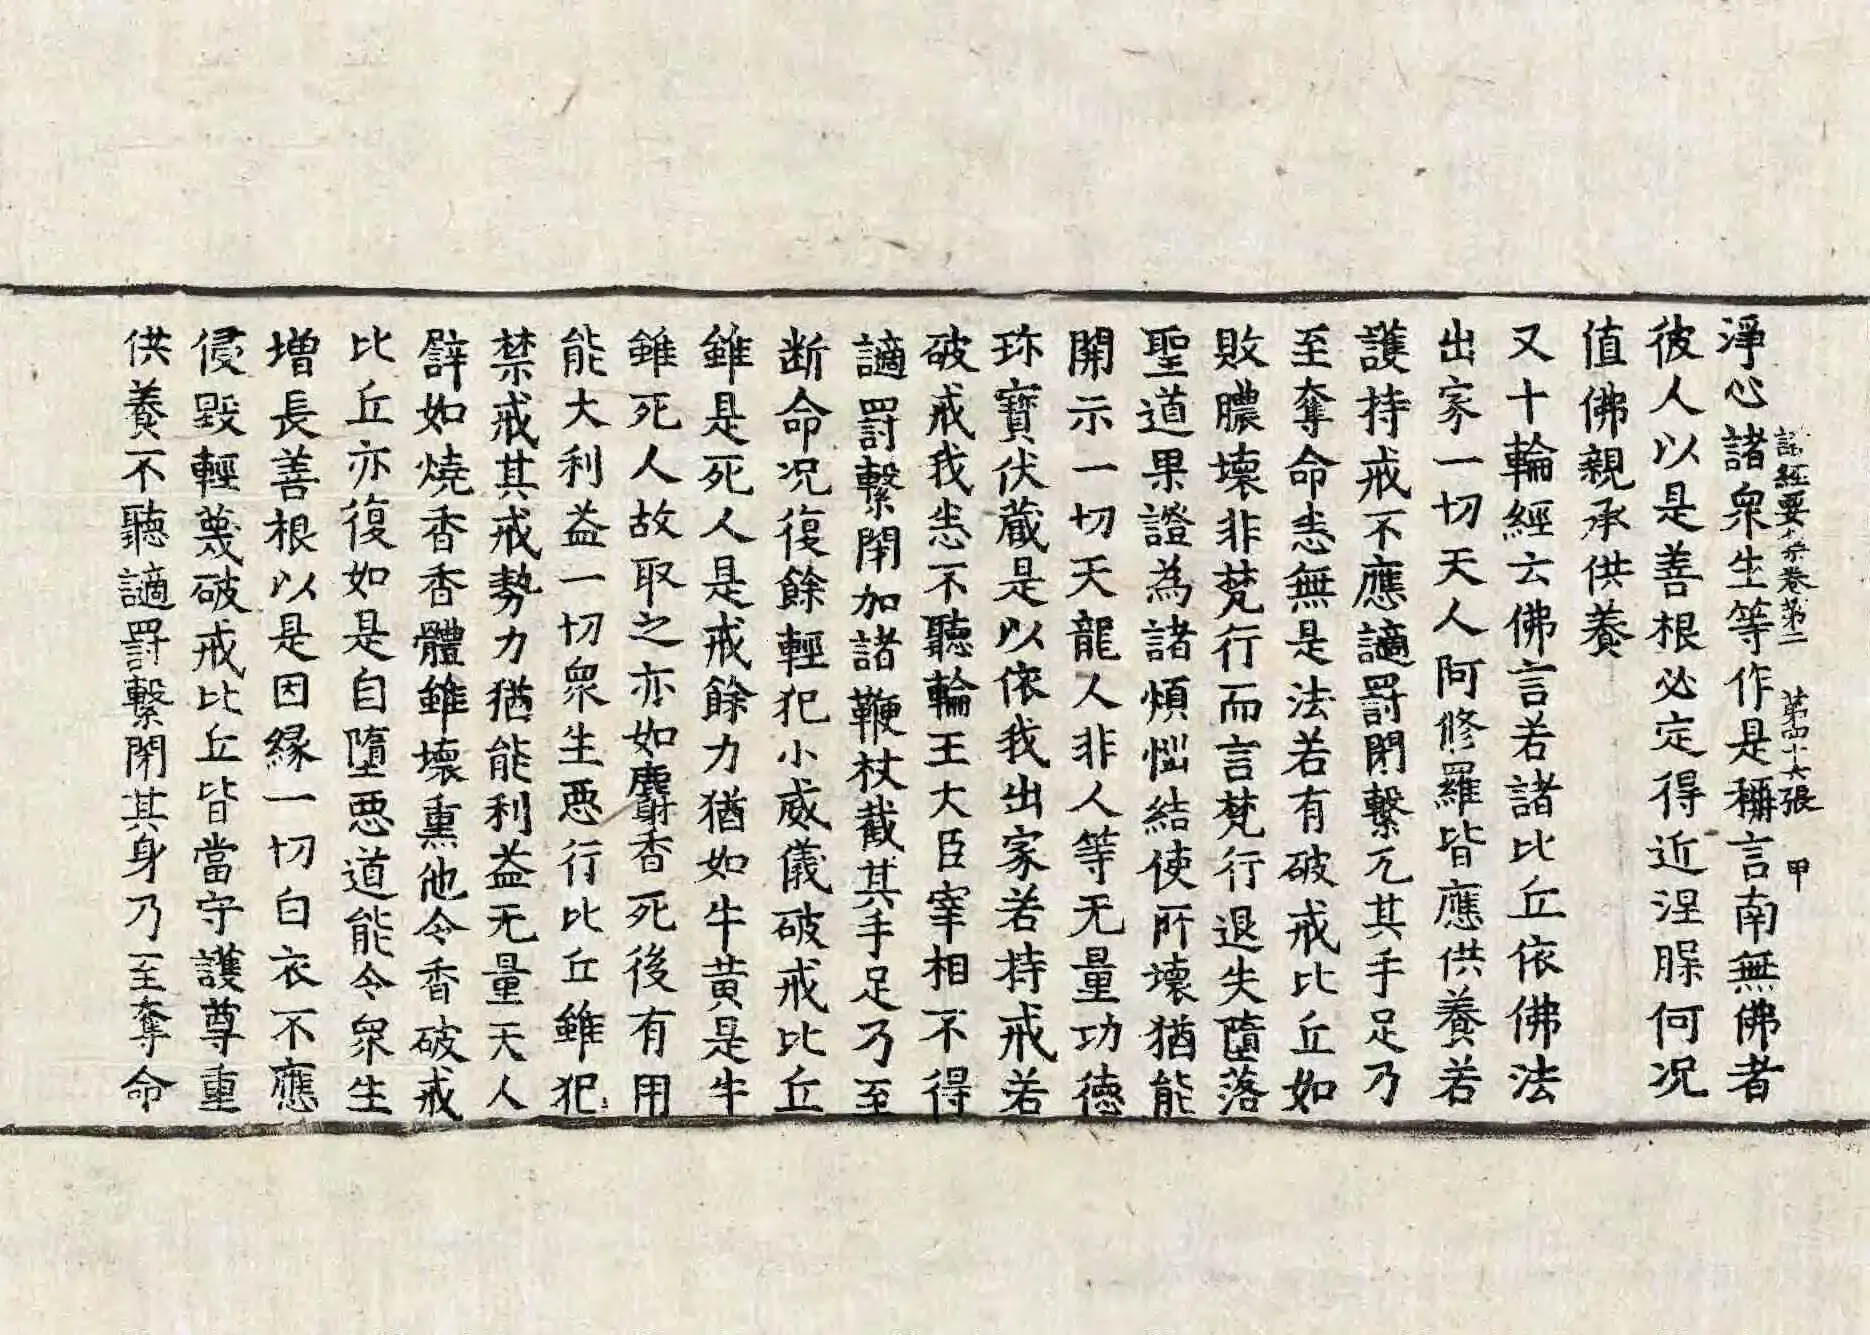 淨心諸衆生等作是稱言南無佛者
諸經要集卷第二 第四十六張 甲
彼人以是善根必定得近涅脲何况
值佛親承供養
又十輪經云佛言若諸比丘依佛法
出家一切天人阿修羅皆應供養若
護持戒不應謫罰閇繫兀其手足乃
至奪命悉無是法若有破戒比丘如
敗膿壞非梵行而言梵行退失墮落
聖道果證為諸煩惱結使所壞猶能
開示一切天龍人非人等无量功德
珎寶伏藏是以依我出家若持戒若
破戒我悉不聽輪王大臣宰相不得
謫罰繫閇加諸鞭杖截其手足乃至
断命况復餘輕犯小威儀破戒比丘
雖是死人是戒餘力猶如牛黄是牛
雖死人故取之亦如麝香死後有用
能大利益一切眾生惡行比丘雖犯
禁戒其戒勢力猶能利益无量天人
辟如燒香香體雖壞熏他令香破戒
比丘亦復如是自墮惡道能令眾生
增長善根以是因緣一切白衣不應
侵毀輕蔑破戒比丘皆當守護尊重
供養不聽謫罰繫閇其身乃至奪命